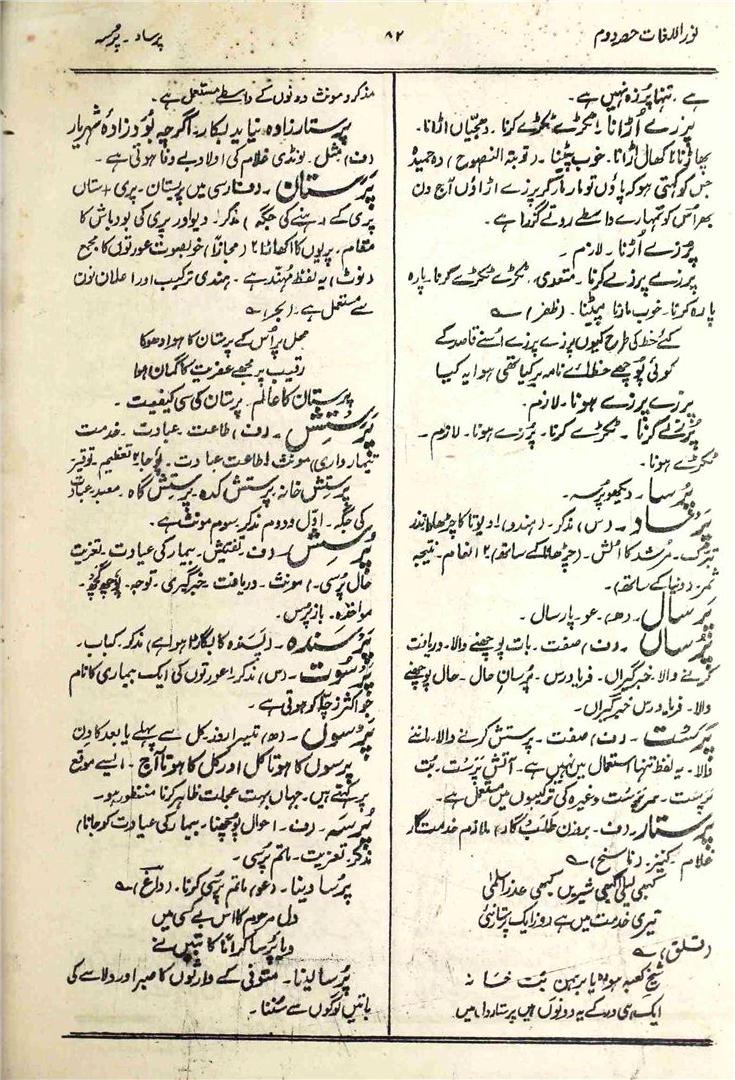 نور اللغات حصہ دوم
۸۲
پرساد۔ پُرسہ
ہے۔ تنہا پُرزہ نہیں ہے۔
پرزے اُڑانا۔ ۱ٹکڑے ٹکڑے کرنا۔ دھجیاں اڑانا۔
پھاڑنا ۲ کھال اڑانا۔ خوب پیٹنا۔ (توبتہ النصوح) حمیدہ
جس کو کہتی ہو کہ پاؤں تو مار مار کر پرزے اڑاؤں آج دن
بھر اُس کو تمہارے واسطے روتے گزرا ہے۔
پرزے اُڑنا۔ لازم۔
پرزے پرزے کرنا۔ متعدی۔ ٹکڑے ٹکڑے کرنا۔ پارہ
پارہ کرنا۔ خوب مارنا پیٹنا۔ (ظفر) ؎
کئے خط کی طرح کیوں پرزے پرزے اُسنے قاصد کے
کوئی پوچھے خطائے نامہ بر کیا تھی ہوا یہ کیا
پرزے پرزے ہونا۔ لازم۔
پُرزے کرنا۔ ٹکڑے کرنا۔ پُرزے ہونا۔ لازم۔
ٹکڑے ہونا۔
پُرسا۔ دیکھو پُرسہ۔
پَرساد۔ (س) مذکر۔ (ہندو) ۱ دیوتا کا چڑھاوا
تبرک۔ مرشد کا اُلش۔ (چڑھانا کے ساتھ) ۲ انعام۔ نتیجہ
ثمر۔ (دینا کے ساتھ)۔
پَرسال۔ (ھ) عو۔ پارسال۔
پُرساں۔ (ف) صفت۔ بات پوچھنے والا۔ دریافت
کرنے والا۔ خبرگیراں۔ فریاد رس۔ پُرسان حال۔ حال پوچھنے
والا۔ فریاد رس خبرگیراں۔
پَرَست۔ (ف) صفت۔ پرستش کرنے والا۔ ماننے
والا۔ یہ لفظ تنہا استعمال میں نہیں ہے۔ آتش پَرَست۔ بُت
پرست۔ وغیرہ کی ترکیبوں میں مستعمل ہے۔
پرستار۔ (ف۔ بروزن طلَب گار) ملازم خدمتگار
غلام۔ کنیز۔ (ناسخ) ؎
کبھی لیلیٰ کبھی شیریں کبھی عذرا سلمیٰ
تیری خدمت میں ہے روز ایک پرستار نئی
(قلق) ؎
شیخ کعبہ ہو وہ یا برہمن بت خانہ
ایک ہی در کے یہ دونوں ہیں پرستاروں میں
مذکر و مونث دونوں کے واسطے مستعمل ہے۔
پرستار زادہ نیاید بکار۔ اگرچہ بُود زادۂ شہریار
(ف) مثل۔ لونڈی غلام کی اولاد بے وفا ہوتی ہے۔
پَرِستان۔ (فارسی میں پریستان۔ پری + ستاں
پری کے رہنے کی جگہ) مذکر۔ ۱ دیو اور پری کی بود باش کا
مقام۔ پریوں کا اکھاڑا ۲ (مجازاً) خوبصورت عورتوں کا مجمع
(نوٹ) یہ لفظ مُہند ہے۔ ہندی ترکیب اور اعلان نون
سے مستعمل ہے۔ (بحر) ؎
محل پر اُس کے پرستان کا ہوا دھوکا
رقیب پر مجھے عفریت کا گماں ہوا
پرستان کا عالم۔ پرستان کی سی کیفیت۔
پَرَستِش۔ (ف) طاعت۔ عبادت۔ خدمت
تیمارداری) مونث ۱ طاعت عبادت۔ پُوجا ۲ تعظیم۔ توقیر
پرستش خانہ۔ پرستش کدہ۔ پرستش گاہ۔ معبد۔ عبادت
کی جگہ۔ اوّل و دوم مذکر۔ سوم مونث ہے۔
پُرسِش۔ (ف۔ تفتیش۔ بیمار کی عیادت۔ تعزیت
حال پُرسی۔) مونث۔ دریافت۔ خبرگیری۔ توجہ۔ پوچھ گچھ۔
مواخذہ۔ بازپرس۔
پَرسَندہ۔ (پسندہ کا بگاڑا ہوا ہے) مذکر۔ کباب۔
پرسُوت۔ (س) مذکر۔ عورتوں کی ایک بیماری کا نام
جو اکثر زچّا کو ہوتی ہے۔
پَرسوں۔ (ھ) تیسرا دن کل سے پہلے یا بعد کا دن
پرسوں کا ہوتا کل اور کل کا ہوتا آج۔ ایسے موقع
پر کہتے ہیں۔ جہاں بہت عجلت ظاہر کرنا منظور ہو۔
پُرسہ۔ (ف۔ احوال پوچھنا۔ بیمار کی عیادت کو جانا)
مذکر۔ تعزیت۔ ماتم پُرسی۔
پرسا دینا۔ (عو) ماتم پرسی کرنا۔ (داغؔ) ؎
دل مرحوم کا اس بے کسی میں
دیا پُرسا کراماً کاتبیں نے
پُرسا لینا۔ متوفی کے وارثوں کا صبر اور دلاسے کی
باتیں لوگوں سے سُننا۔